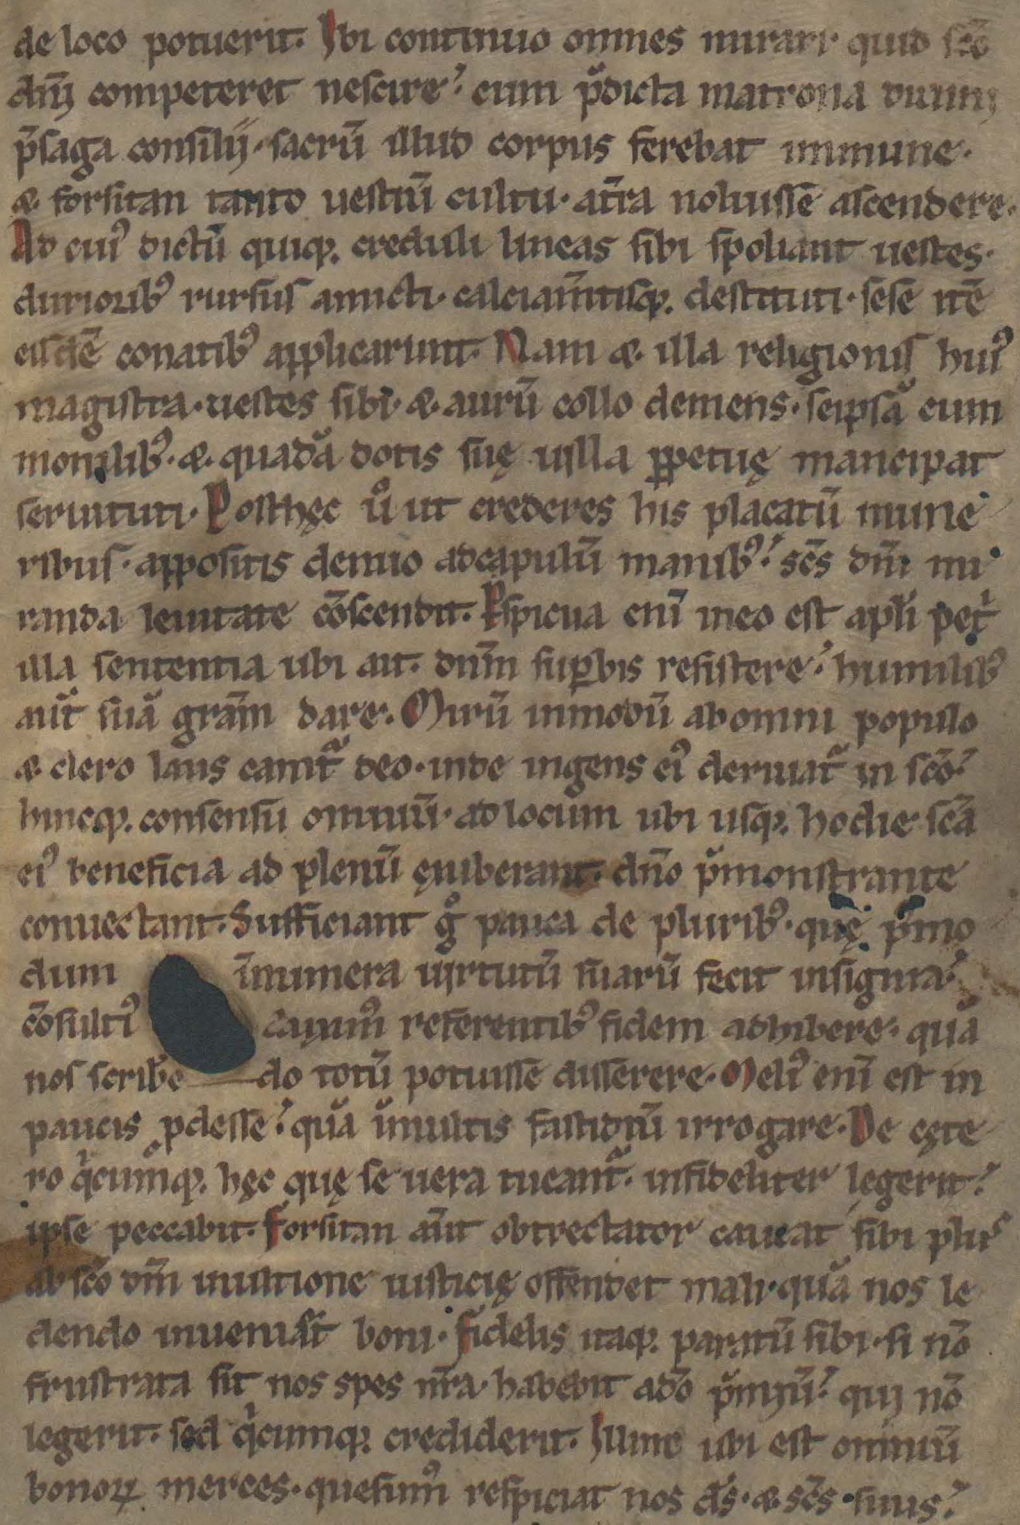 de loco potuerit. Ibi continuo omnes mirari quid sc̄o
dn̄i competeret nescire? cum p̄dicta matrona diuini
p̄saga consilij. sacrū illud corpus ferebat immune.
& forsitan tanto uestiū cultu. at̄ra noluissē ascendere.
Ad cuiꝰ dictū quiqꝫ creduli lineas sibi spoliant uestes.
durioribꝰ rursus amicti. calciam̄tisqꝫ destituti. sese itē
eisdē conatibꝰ applicarunt. Nam & illa religionis huiꝰ
magistra. uestes sibi. & aurū collo demens. seipsā cum
monilibꝰ. & quadā dotis suę uilla ꝑpetuę mancipat
seruituti. Posthęc ūo ut crederes his placatū mune
ribus. appositis denuo adcapulū manibꝰ? sc̄s dn̄i mi
randa leuitate cōscendit. Ꝑspicua eni meo est apli pet̄
illa sententia ubi ait. dn̄m suꝑbis resistere? humilibꝰ
aut̄ suā grām dare. Mirū inmodū abomni populo
& clero laus canit̄ deo. inde ingens eiꝰ deriuat̄ in sc̄o?
hincqꝫ consensu omniū. ad locum ubi usqꝫ hodie sc̄a
eiꝰ beneficia ad plenū ęxiberant. dn̄o p̄monstrante
conuectant. Sufficiant gͦ pauca de pluribꝰ. quę p̄mo
dum īnumera uirtutū suarū fecit insignia?
cōsultiꝰ referentibꝰ fidem adhibere. quā
nos scribē do totū potuissē disserere. Meliꝰ enī est in
paucis ꝓdesse? quā īmultis fastidiū irrogare. De cęte
ro q̇cumqꝫ hęc quę se uera tueant̄. infideliter legerit?
ipse peccabit. Forsitan aūt obtrectator caueat sibi pluꝰ
ab sc̄o dn̄i inultione iusticię offendet mali. quā nos le
dendo inueniat̄ boni. Fidelis itaqꝫ paratū sibi. si nō
frustrata sit nos spes nr̄a. habebit adō p̄miū? qui nō
legerit. sed q̇cumqꝫ crediderit. Illinc ubi est omniū
bonoꝝ merces. quesumꝰ respiciat nos ds̄. & sc̄s suus?